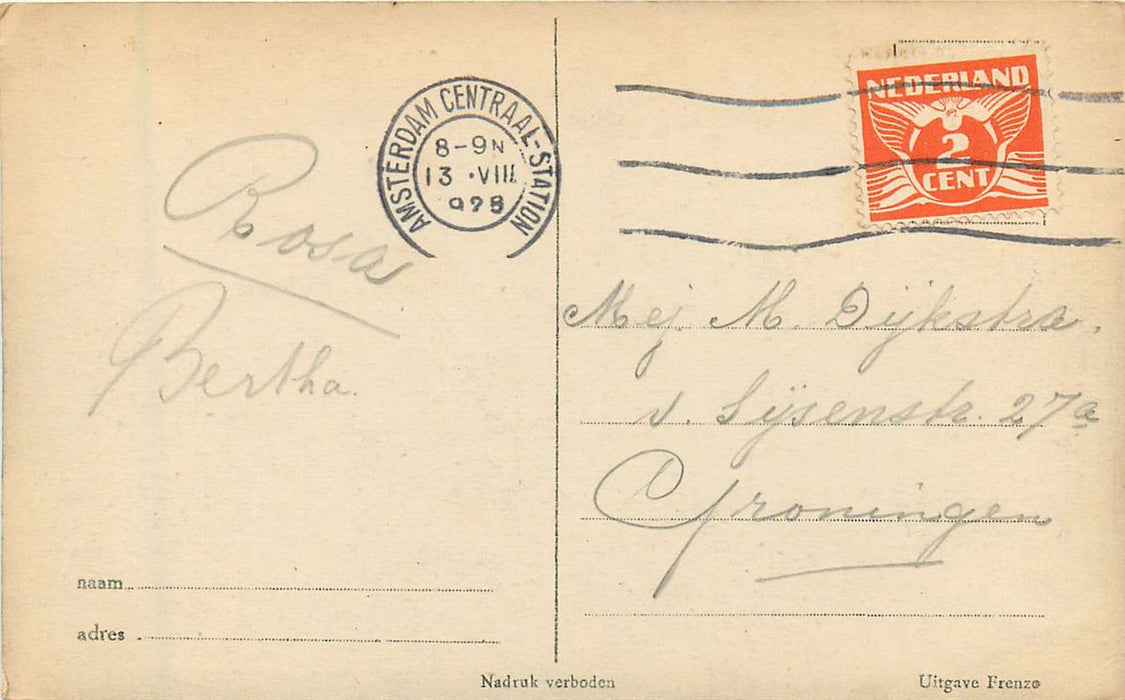 AMSTERDAM CENTRAAL-STATION
8-9N
13 ·VIII
928
NEDERLAND
2
CENT
Rosa
Bertha.
Mej. M. Dijkstra.
v. Sijsenstr. 27a
Groningen
naam
adres
Nadruk verboden
Uitgave Frenzo